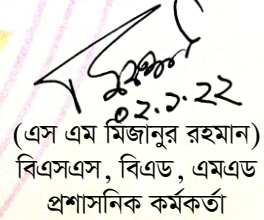 ০২.১.২২
(এস এম মিজানুর রহমান)
বিএসএস, বিএড, এমএড
প্রশাসনিক কর্মকর্তা